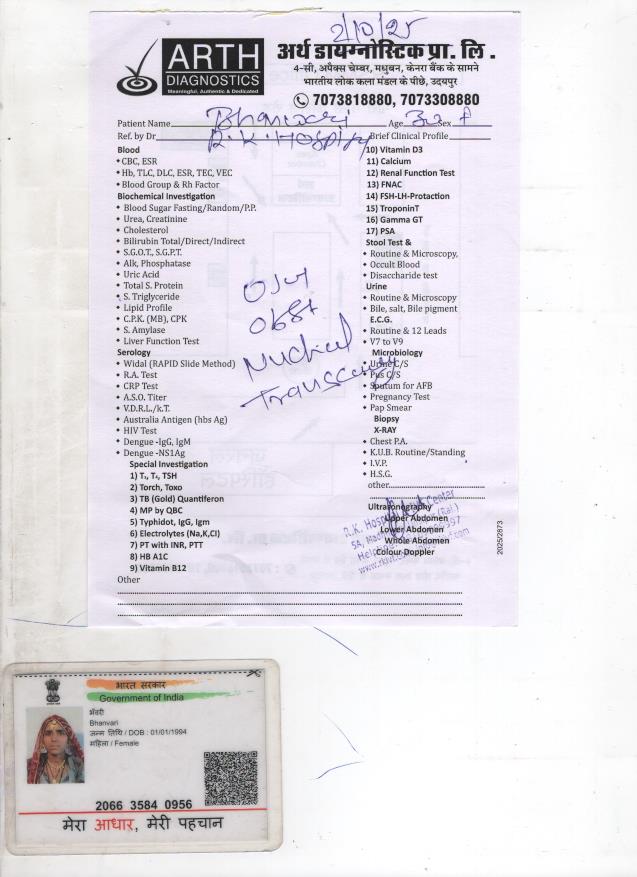 2/10/25
ARTH
DIAGNOSTICS
Meaningful, Authentic & Dedicated
अर्थ डायग्नोस्टिक प्रा. लि .
4-सी, अपैक्स चेम्बर, मधुबन, केनरा बैंक के सामने
भारतीय लोक कला मंडल के पीछे, उदयपुर
7073818880, 7073308880
Patient Name Bhanwari Age 32 Sex F
Ref. by Dr R.K. Hospital Brief Clinical Profile
Blood
CBC, ESR
Hb, TLC, DLC, ESR, TEC, VEC
Blood Group & Rh Factor
Biochemical Investigation
Blood Sugar Fasting/Random/P.P.
Urea, Creatinine
Cholesterol
Bilirubin Total/Direct/Indirect
S.G.O.T., S.G.P.T.
Alk, Phosphatase
Uric Acid
Total S. Protein
S. Triglyceride
Lipid Profile
C.P.K. (MB), CPK
S. Amylase
Liver Function Test
Serology
Widal (RAPID Slide Method)
R.A. Test
CRP Test
A.S.O. Titer
V.D.R.L./k.T.
Australia Antigen (hbs Ag)
HIV Test
Dengue -IgG, IgM
Dengue -NS1Ag
Special Investigation
1) T₃, T₄, TSH
2) Torch, Toxo
3) TB (Gold) Quantiferon
4) MP by QBC
5) Typhidot, IgG, Igm
6) Electrolytes (Na,K,Cl)
7) PT with INR, PTT
8) HB A1C
9) Vitamin B12
Other
10) Vitamin D3
11) Calcium
12) Renal Function Test
13) FNAC
14) FSH-LH-Protaction
15) TroponinT
16) Gamma GT
17) PSA
Stool Test &
Routine & Microscopy,
Occult Blood
Disaccharide test
Urine
Routine & Microscopy
Bile, salt, Bile pigment
E.C.G.
Routine & 12 Leads
V7 to V9
Microbiology
Urine C/S
Pus C/S
Sputum for AFB
Pregnancy Test
Pap Smear
Biopsy
X-RAY
Chest P.A.
K.U.B. Routine/Standing
I.V.P.
H.S.G.
other
Ultrasonography
Upper Abdomen
Lower Abdomen
Whole Abdomen
Colour Doppler
obst
Nuchal
R.K. Hosp
Center
2025/2873
भारत सरकार
Government of India
भंवरी
Bhanvari
जन्म तिथि / DOB : 01/01/1994
महिला / Female
2066 3584 0956
मेरा आधार, मेरी पहचान